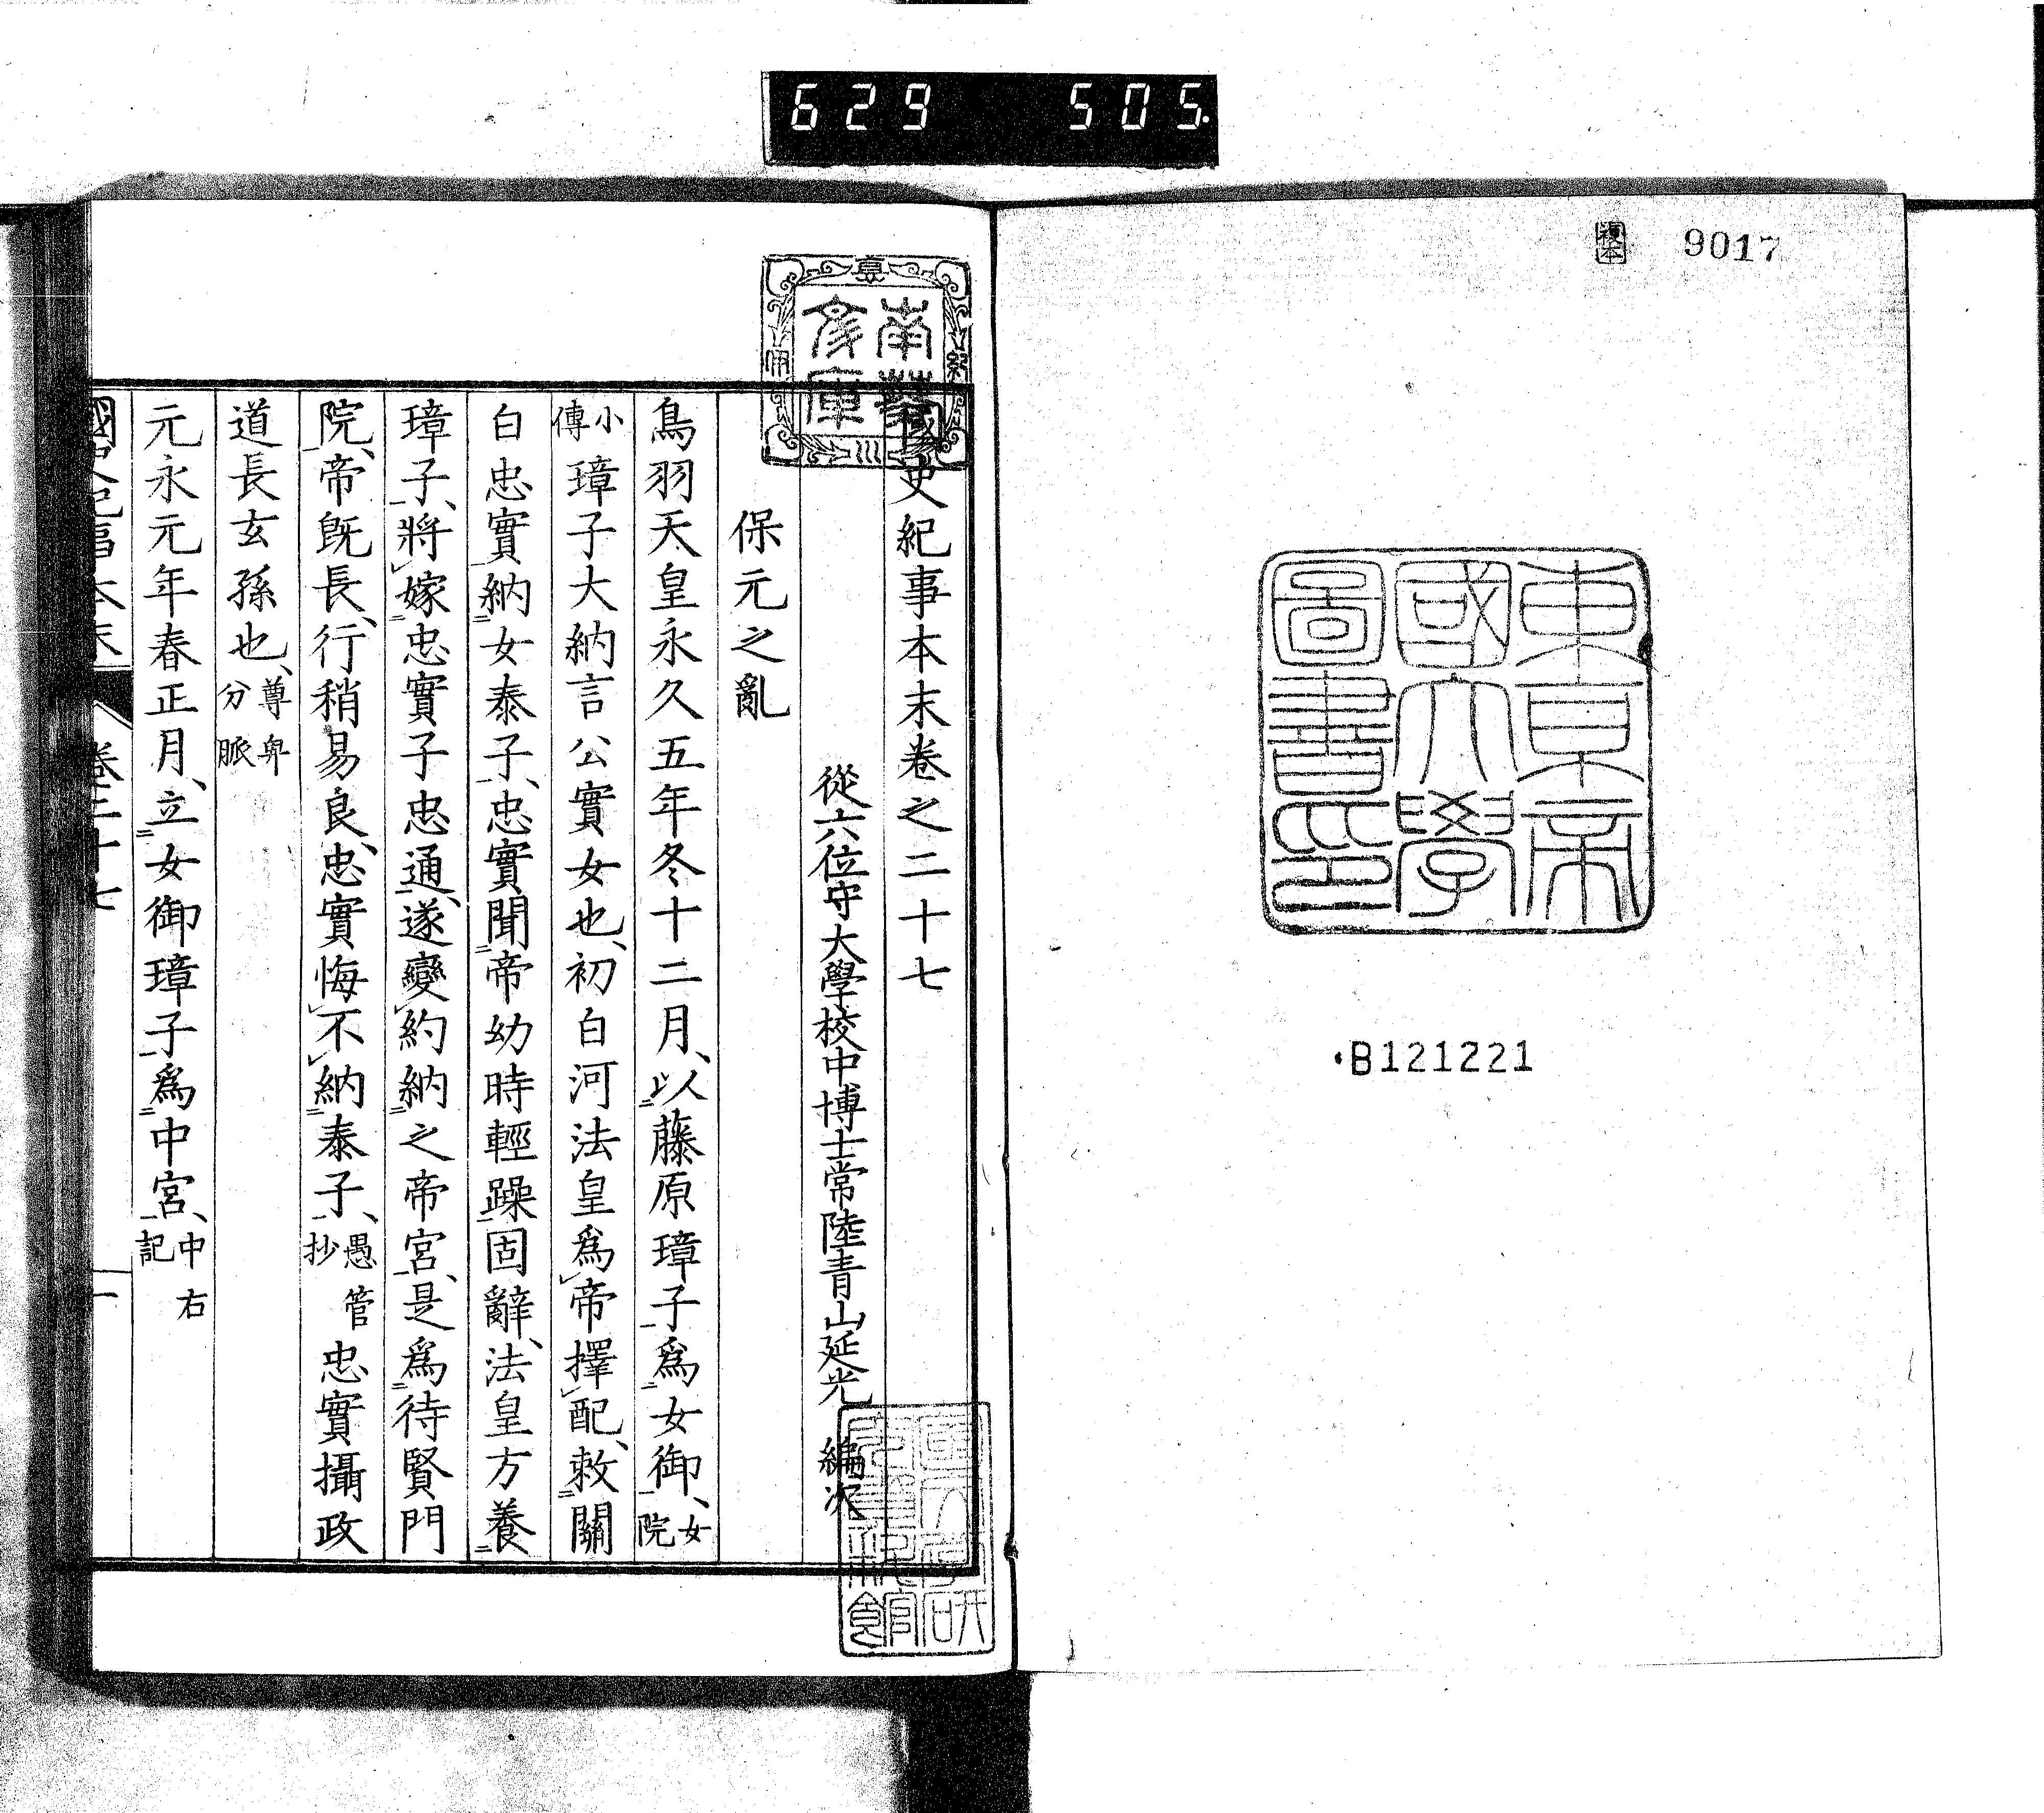 629 505.
複本 9017
東京帝
國大學
圖書印
B121221
南葵
文庫
國史紀事本末卷之二十七
從六位守大學校中博士常陸青山延光 編次
保元之亂
鳥羽天皇永久五年冬十二月、以藤原璋子爲女御、女院
小傳璋子大納言公實女也、初白河法皇爲帝擇配、敕關
白忠實納女泰子、忠實聞帝幼時輕躁固辭、法皇方養
璋子、將嫁忠實子忠通、遂變約納之帝宮、是爲待賢門
院、帝既長、行稍易良、忠實悔不納泰子、愚管抄忠實攝政
道長玄孫也、尊卑分脈
元永元年春正月、立女御璋子爲中宮、中右記
國史紀事本末 卷二十七 一